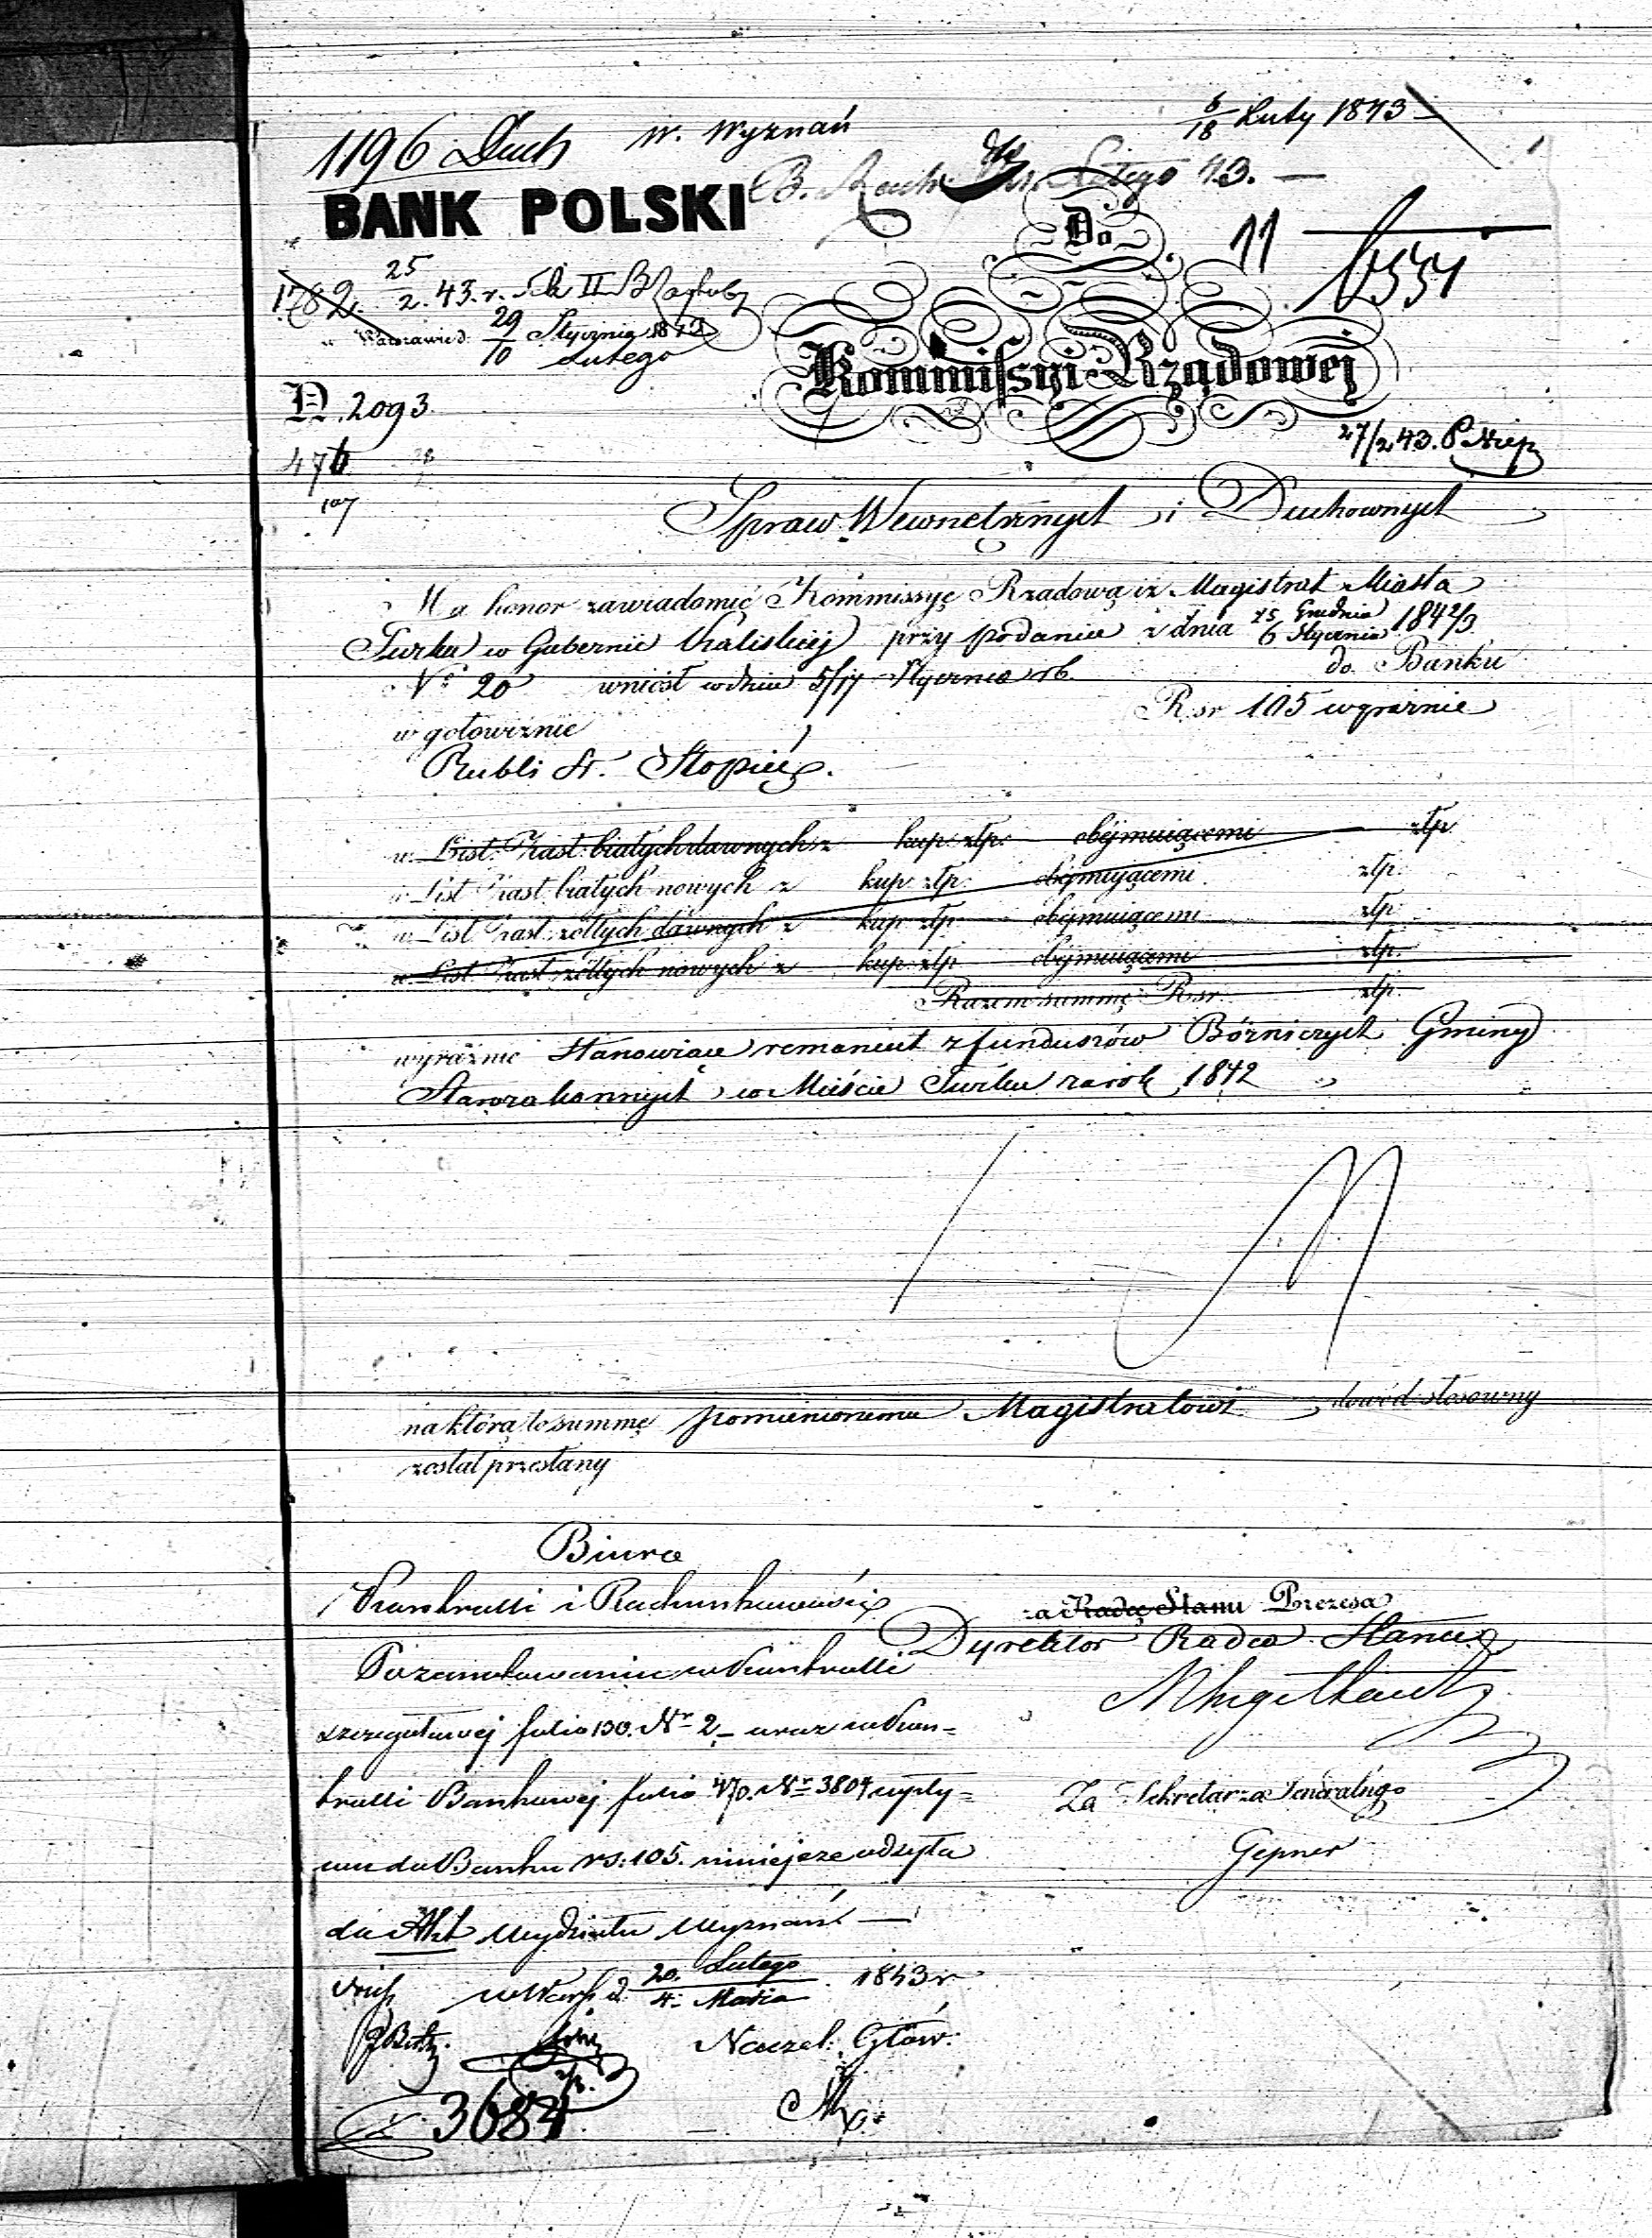 6/18 Luty 1843
1196 Duch W. Wyznań
Lutego 43. —
BANK POLSKI
Do
11
1782. 25/2. 43. r. II
w Warszawie d. 29/10 Stycznia/Lutego 1843
Kommissyi Rządowej
N. 2093.
27/2 43.
476
Spraw Wewnętrznych i Duchownych
Ma honor zawiadomić Kommissyę Rządową iż Magistrat Miasta
Turka w Gubernii Kaliskiej przy podaniu z dnia 25 Grudnia/6 Stycznia 1842/3
No 20 wniósł w dniu 5/17 Stycznia rb. do Banku
w gotowiźnie R. sr 105 wyraźnie
Rubli sr. Stopięć.
w List. Zast. białych dawnych z kup. złp. obejmuiącemi złp.
w List. Zast. białych nowych z kup. złp. obejmuiącemi złp.
w List. Zast. żółtych dawnych z kup. złp. obejmuiącemi złp.
w List. Zast. żółtych nowych z kup. złp. obejmuiącemi złp.
Razem summę R. sr. złp.
wyraźnie stanowiące remanent z funduszów Bóżniczych Gminy
Starozakonnych w Mieście Turku za rok 1842
na którą to summę pomienionemu Magistratowi dowód stosowny
został przesłany
Biuro
Kontrolli i Rachunkowości
za Radcę Stanu Prezesa
Dyrektor Radca Stanu
Po zanotowaniu w Kontrolli
szczegółowej folio 130. Nr 2 – oraz w Kon=
trolli Bankowej folio 470. Nr 3804 wpły=
Za Sekretarza Jeneralnego
wu do Banku rs: 105. niniejsze odsyła
Gepner
do Akt Wydziału Wyznań —
w Warsz. d. 20. Lutego/4. Marca 1843 r
Naczel: Głów:
3684